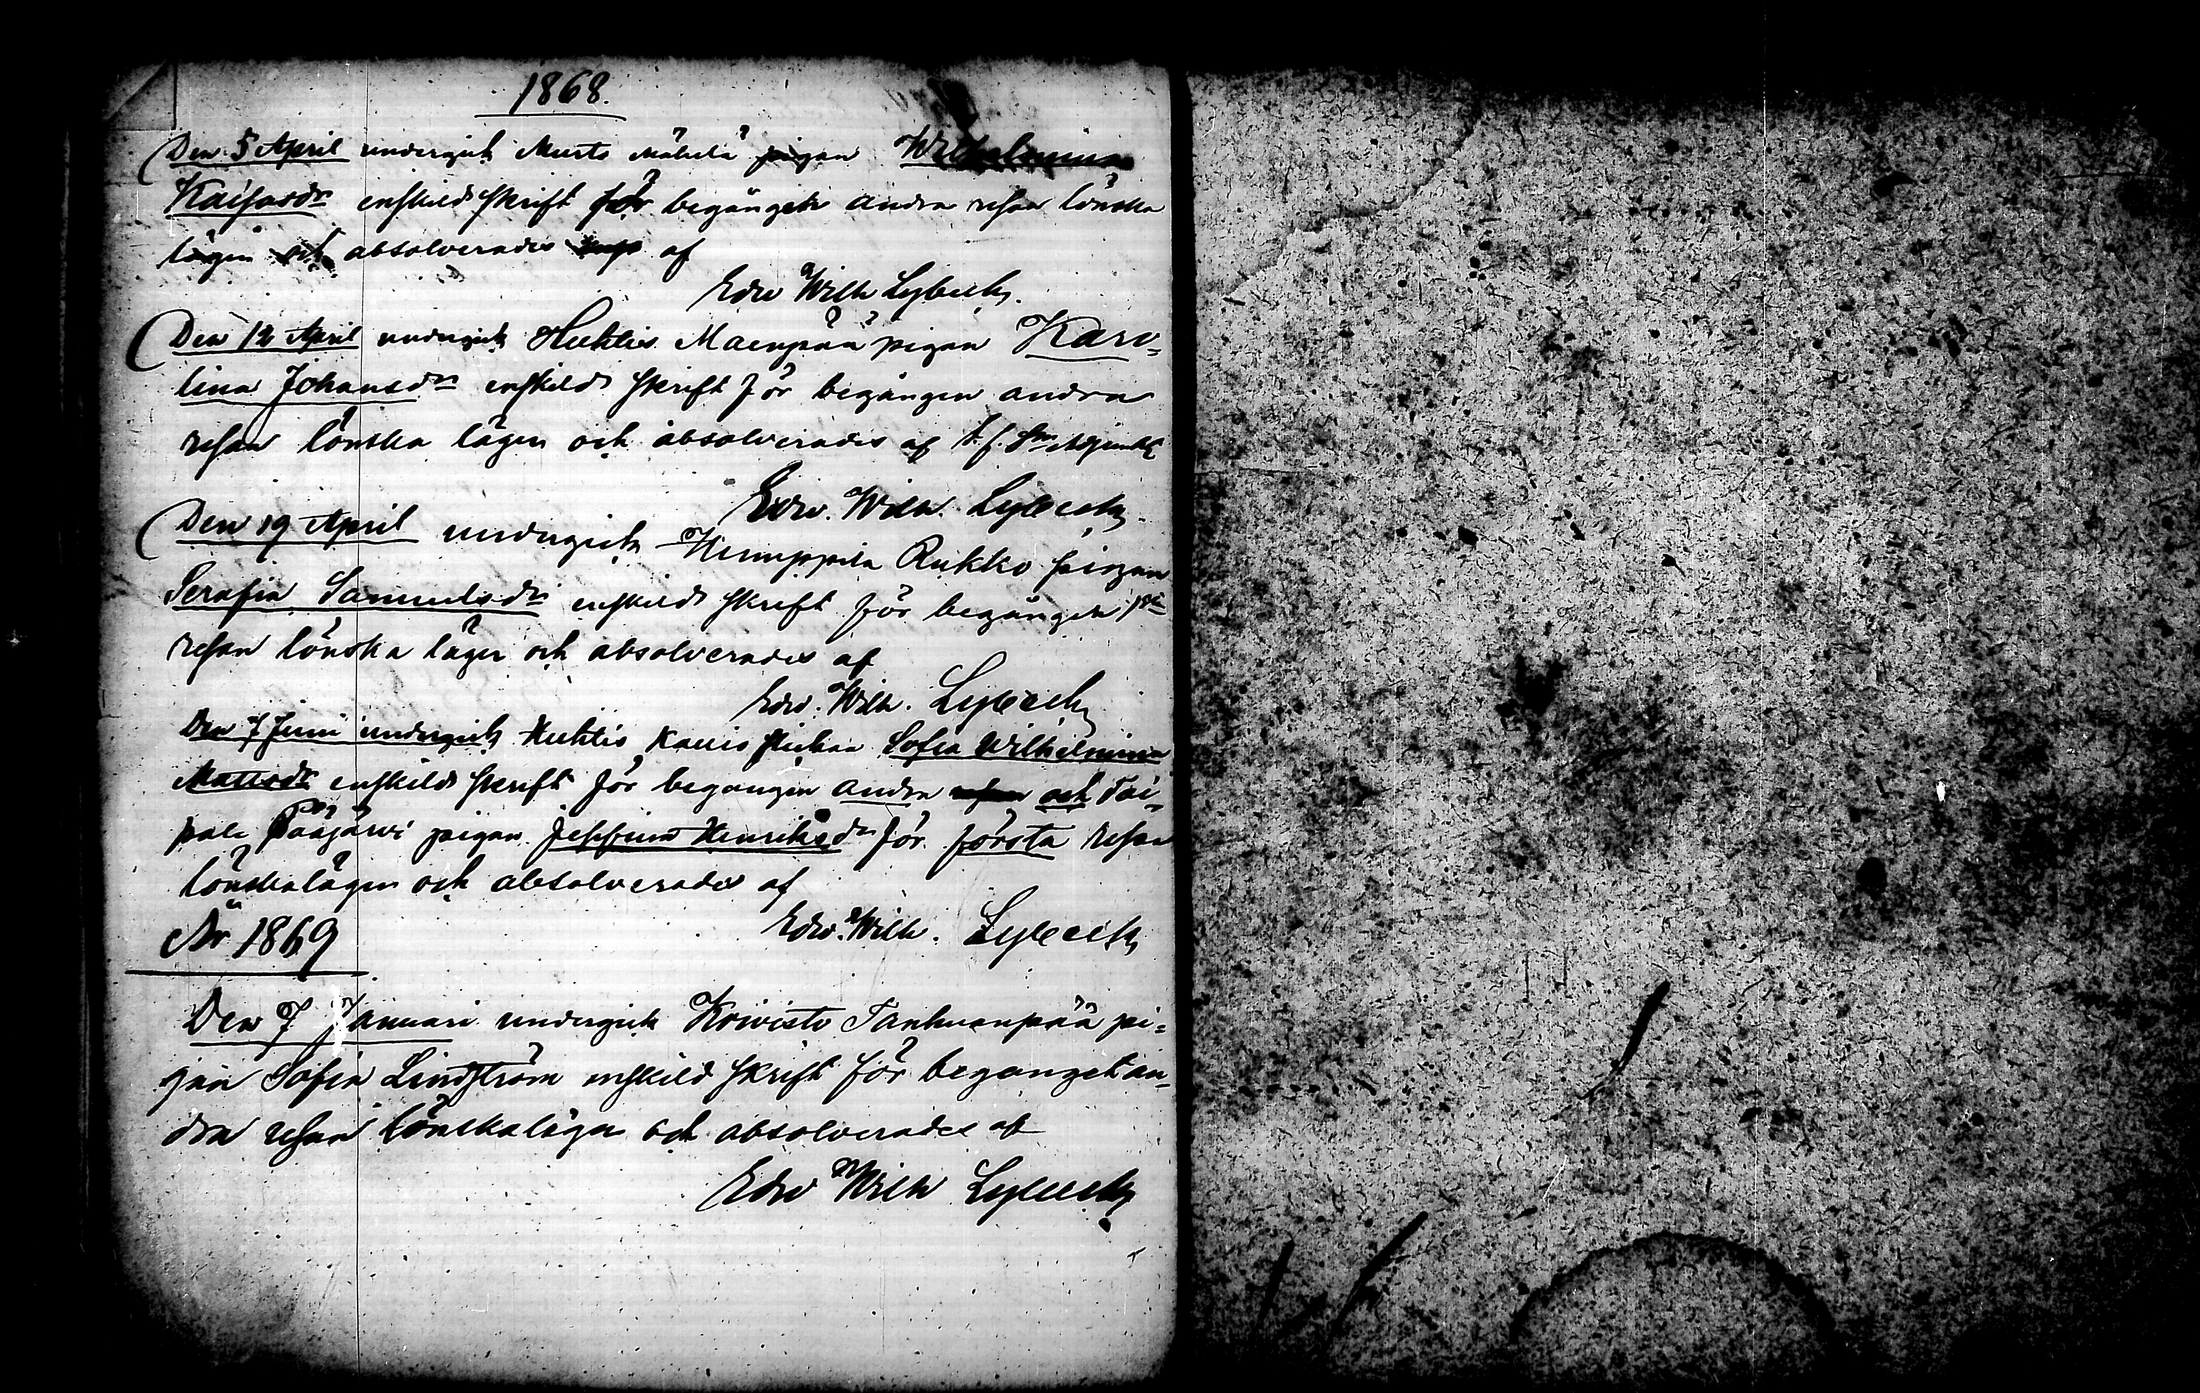 1868.
Den 5 April undergick Murto Mäkelä pigan Wilhelmina
Kaisasdr enskild skrift för begånget andra resan lönska
lägen och absolverades af
Edw Wilh Lybeck.
Den 12 April undergick Huhtis Maenpää pigan Karo-
lina Johansdr enskild skrift för begången andra
resan lönska lägen och absolverades af t.f. Adjunkt
Edw. Wilh. Lybeck.
Den 19 April undergick Humppila Rukko
Serafia Samuelsdr enskild skrift för begånget 1sta
resan lönska läger och absolverades af
Edw. Wilh. Lybeck
Den 7 Juni undergick Huhtis Kauris flickan Sofia Wilhelmina
Mattsdr enskild skrift för begången andra resan och Tai-
pale Pääjärvi pigan Henriksdr för första resan
lönskalägen och absolverades af
Edw. Wilh. Lybeck
År 1869
Den 7 Januari undergick Koivisto Tanhuanpää pi-
gan Sofia Lindström enskild skrift för begånget an-
dra resan lönskaläger och absolverades af
Edw Wilh Lybeck